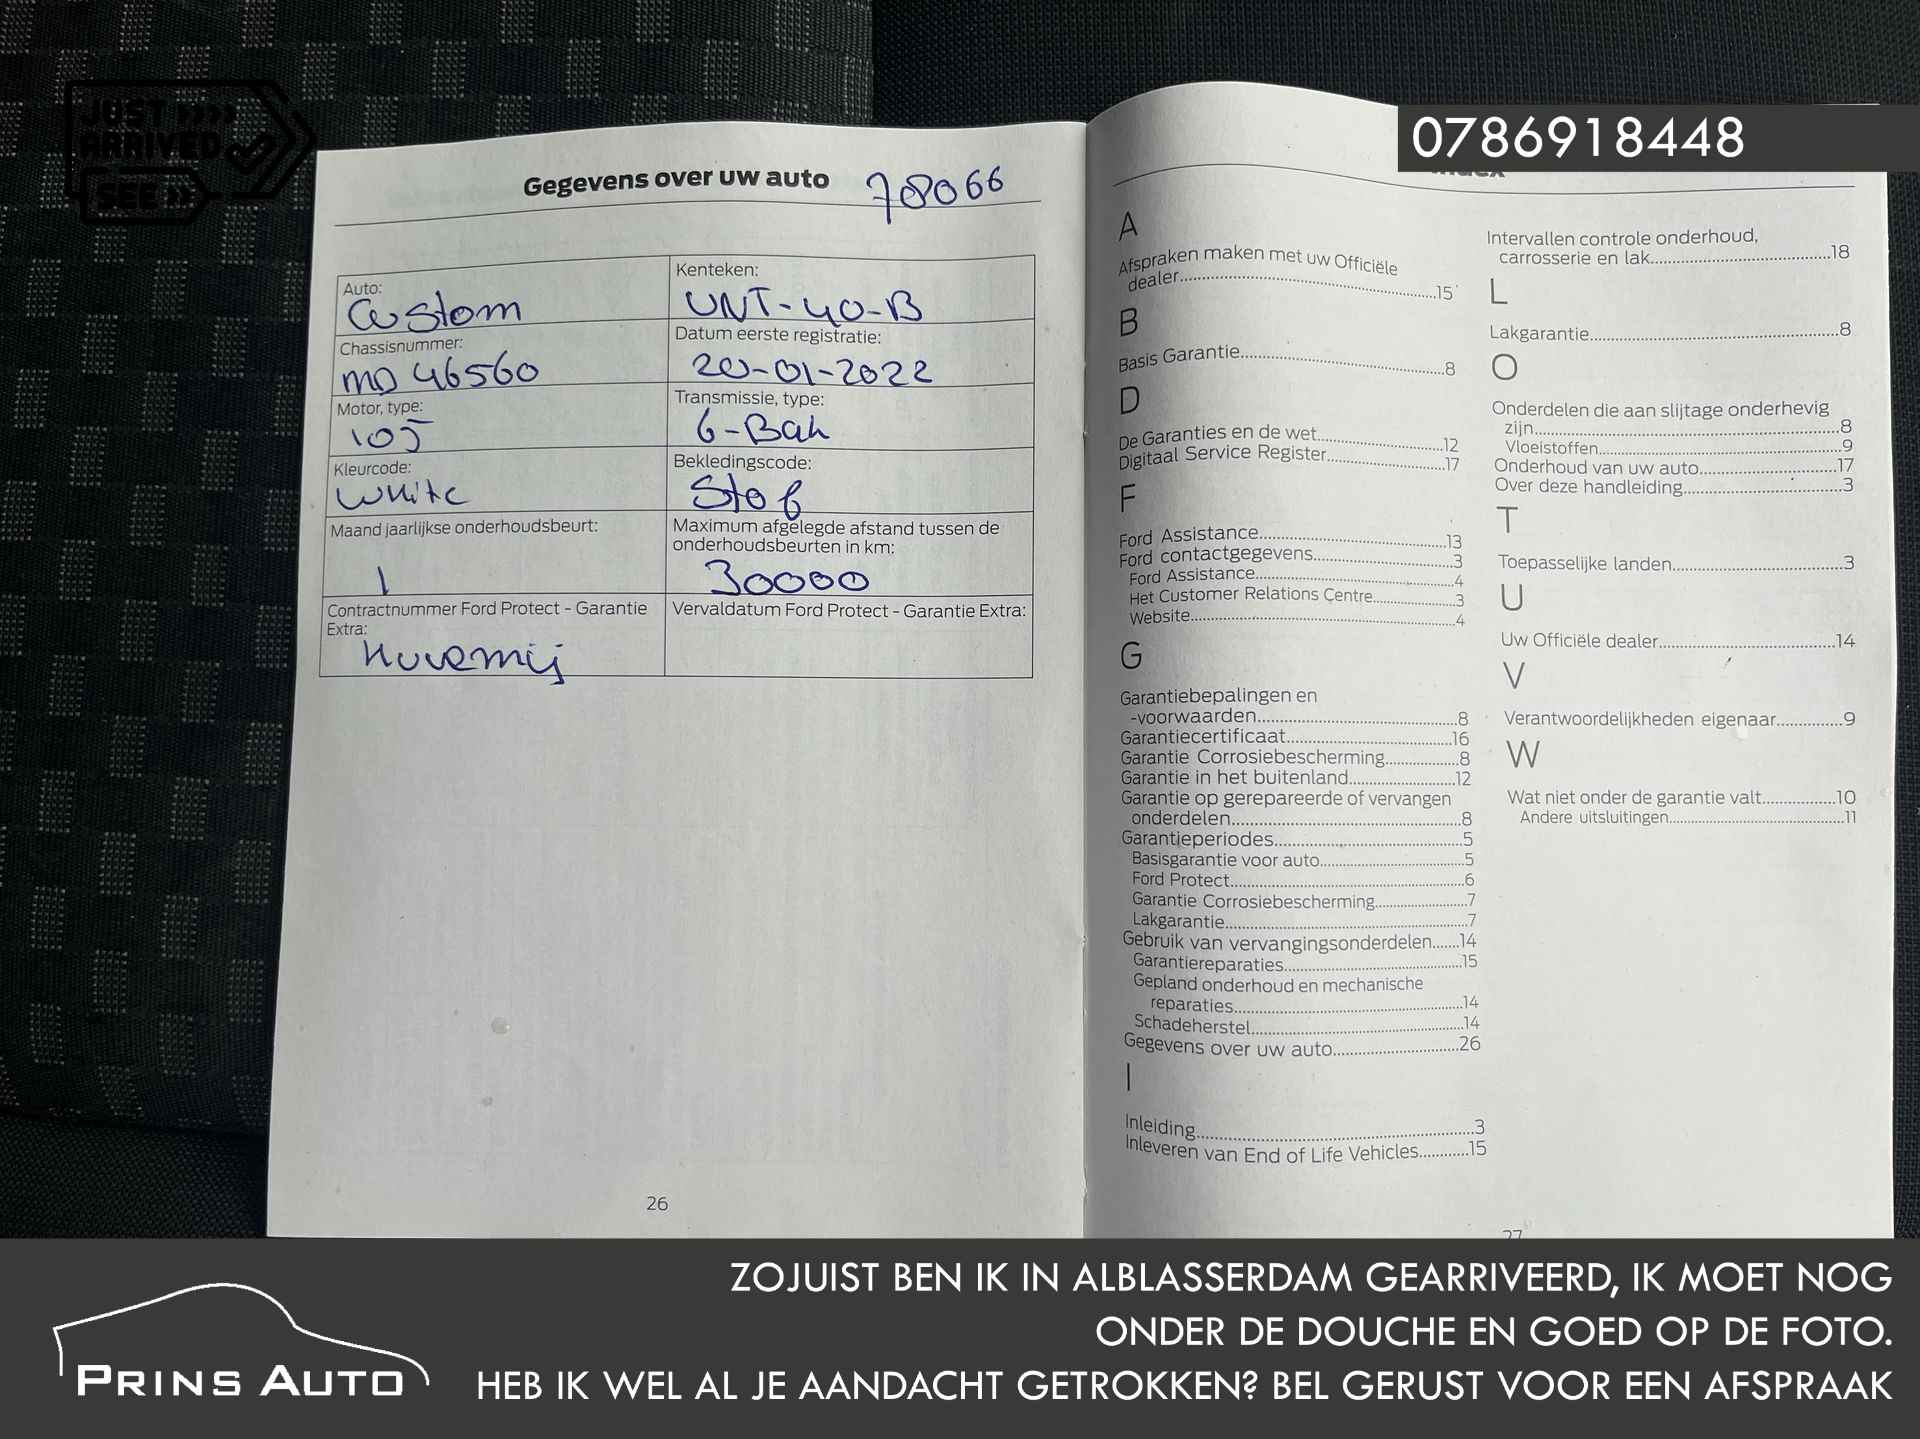 JUST >>>>
ARRIVED
SEE >>
0786918448
Gegevens over uw auto 78066
Auto:
Custom
Kenteken:
VNT-40-B
Chassisnummer:
MD 46560
Datum eerste registratie:
20-01-2022
Motor, type:
105
Transmissie, type:
6-Bak
Kleurcode:
White
Bekledingscode:
Stof
Maand jaarlijkse onderhoudsbeurt:
1
Maximum afgelegde afstand tussen de
onderhoudsbeurten in km:
30000
Contractnummer Ford Protect - Garantie
Extra:
Vervaldatum Ford Protect - Garantie Extra:
26
Index
A
Afspraken maken met uw Officiële
dealer...15
B
Basis Garantie...8
D
De Garanties en de wet...12
Digitaal Service Register...17
F
Ford Assistance...13
Ford contactgegevens...3
Ford Assistance...4
Het Customer Relations Centre...3
Website...4
G
Garantiebepalingen en
-voorwaarden...8
Garantiecertificaat...16
Garantie Corrosiebescherming...8
Garantie in het buitenland...12
Garantie op gerepareerde of vervangen
onderdelen...8
Garantieperiodes...5
Basisgarantie voor auto...5
Ford Protect...6
Garantie Corrosiebescherming...7
Lakgarantie...7
Gebruik van vervangingsonderdelen...14
Garantiereparaties...15
Gepland onderhoud en mechanische
reparaties...14
Schadeherstel...14
Gegevens over uw auto...26
I
Inleiding...3
Inleveren van End of Life Vehicles...15
Intervallen controle onderhoud,
carrosserie en lak...18
L
Lakgarantie...8
O
Onderdelen die aan slijtage onderhevig
zijn...8
Vloeistoffen...9
Onderhoud van uw auto...17
Over deze handleiding...3
T
Toepasselijke landen...3
U
Uw Officiële dealer...14
V
Verantwoordelijkheden eigenaar...9
W
Wat niet onder de garantie valt...10
Andere uitsluitingen...11
27
PRINS AUTO
ZOJUIST BEN IK IN ALBLASSERDAM GEARRIVEERD, IK MOET NOG
ONDER DE DOUCHE EN GOED OP DE FOTO.
HEB IK WEL AL JE AANDACHT GETROKKEN? BEL GERUST VOOR EEN AFSPRAAK